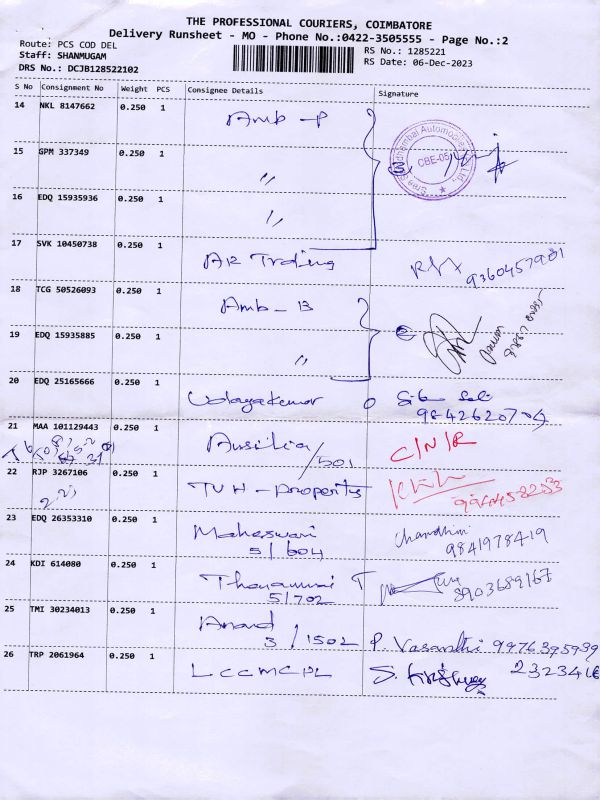 THE PROFESSIONAL COURIERS, COIMBATORE
Delivery Runsheet - MO - Phone No.:0422-3505555 - Page No.:2
Route: PCS COD DEL
RS No.: 1285221
Staff: SHANMUGAM
RS Date: 06-Dec-2023
DRS No.: DCJB128522102
S No Consignment No Weight PCS Consignee Details Signature
14 NKL 8147662 0.250 1 Amb - P
CBE-05
15 GPM 337349 0.250 1 "
16 EDQ 15935936 0.250 1 "
17 SVK 10450738 0.250 1 AR Trading 9360457981
18 TCG 50526093 0.250 1 Amb - B
19 EDQ 15935885 0.250 1 "
20 EDQ 25165666 0.250 1 Udayakumar
9842620704
21 MAA 101129443 0.250 1 Ausilia / 501 C/N/R
22 RJP 3267106 0.250 1 TVH - Propertys
23 EDQ 26353310 0.250 1 Maheswari Chandhini
5/604 9841978419
24 KDI 614080 0.250 1
5/702 8903689167
25 TMI 30234013 0.250 1 Anand
3/1502 P. Vasanthi
26 TRP 2061964 0.250 1 LCCMCPL